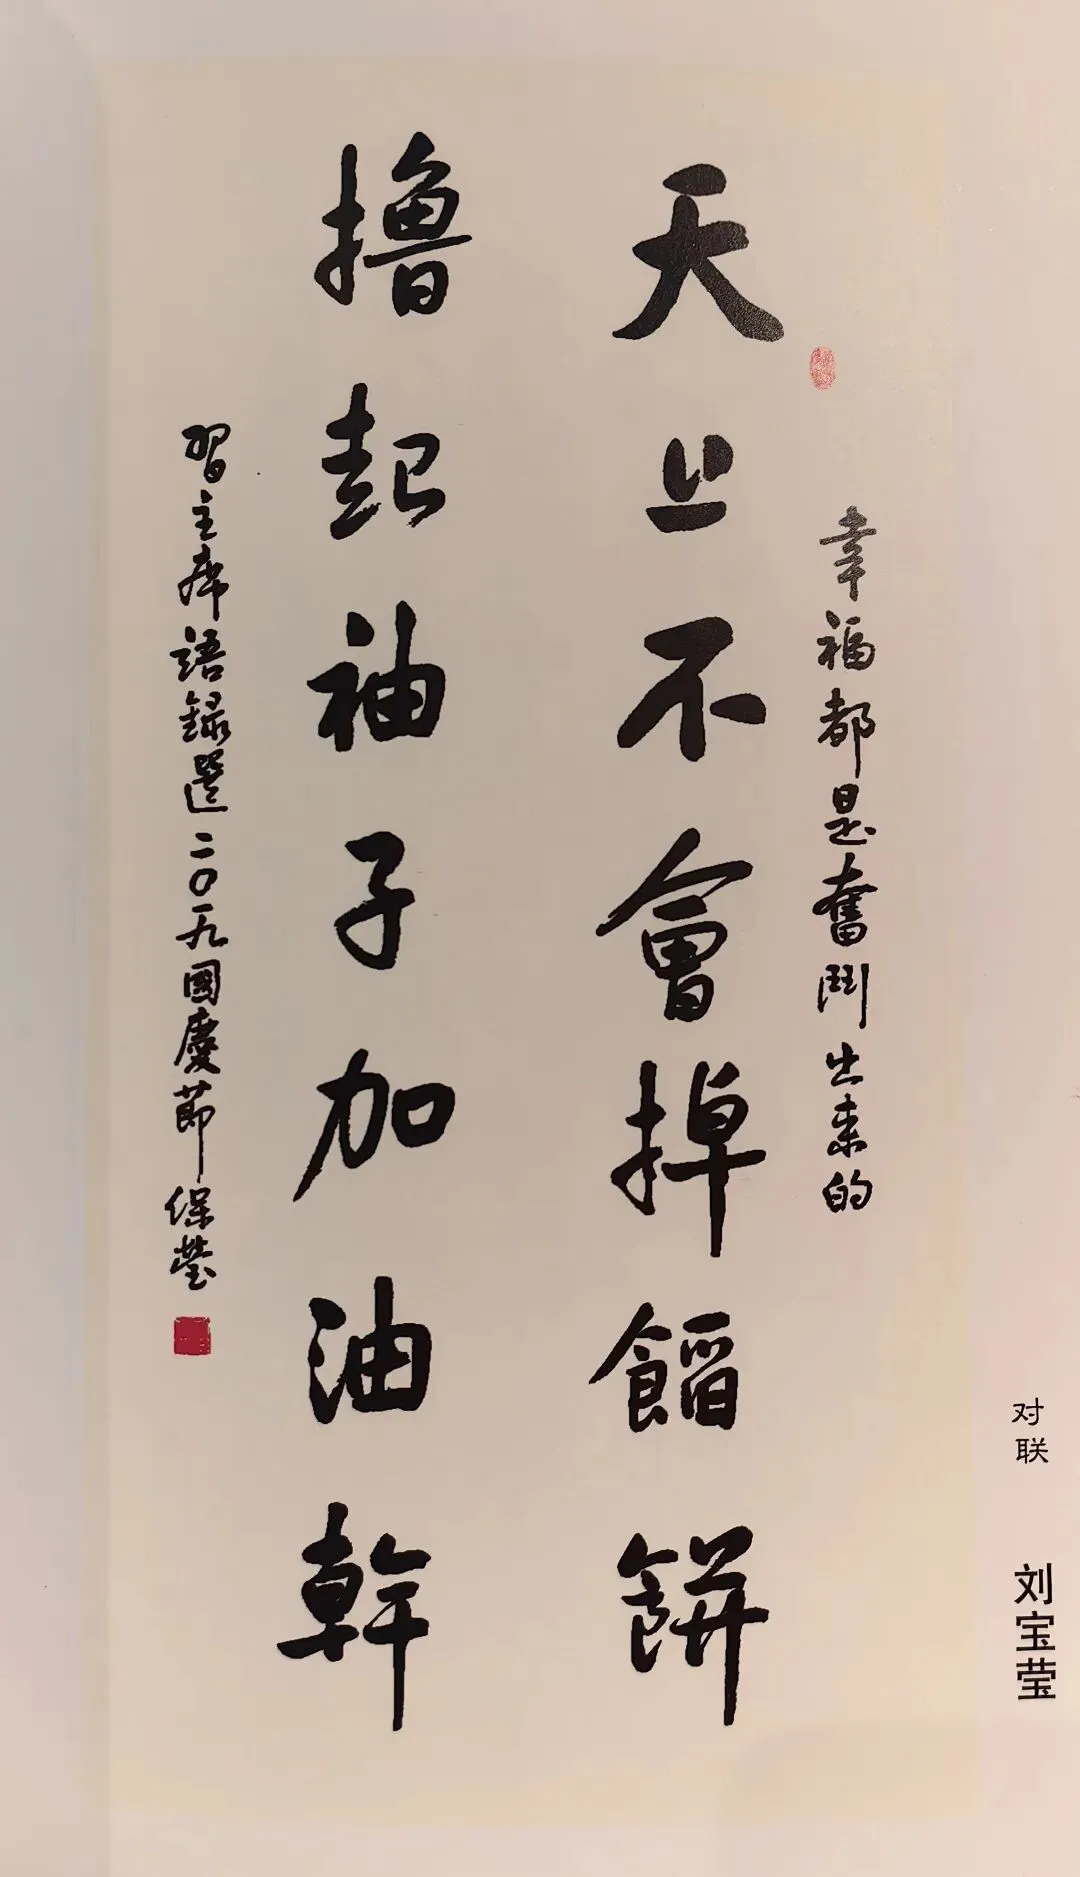 幸福都是奮鬥出来的
天上不會掉餡餅
撸起袖子加油幹
習主席語録選二〇一九國慶節保瑩
对联
刘宝莹